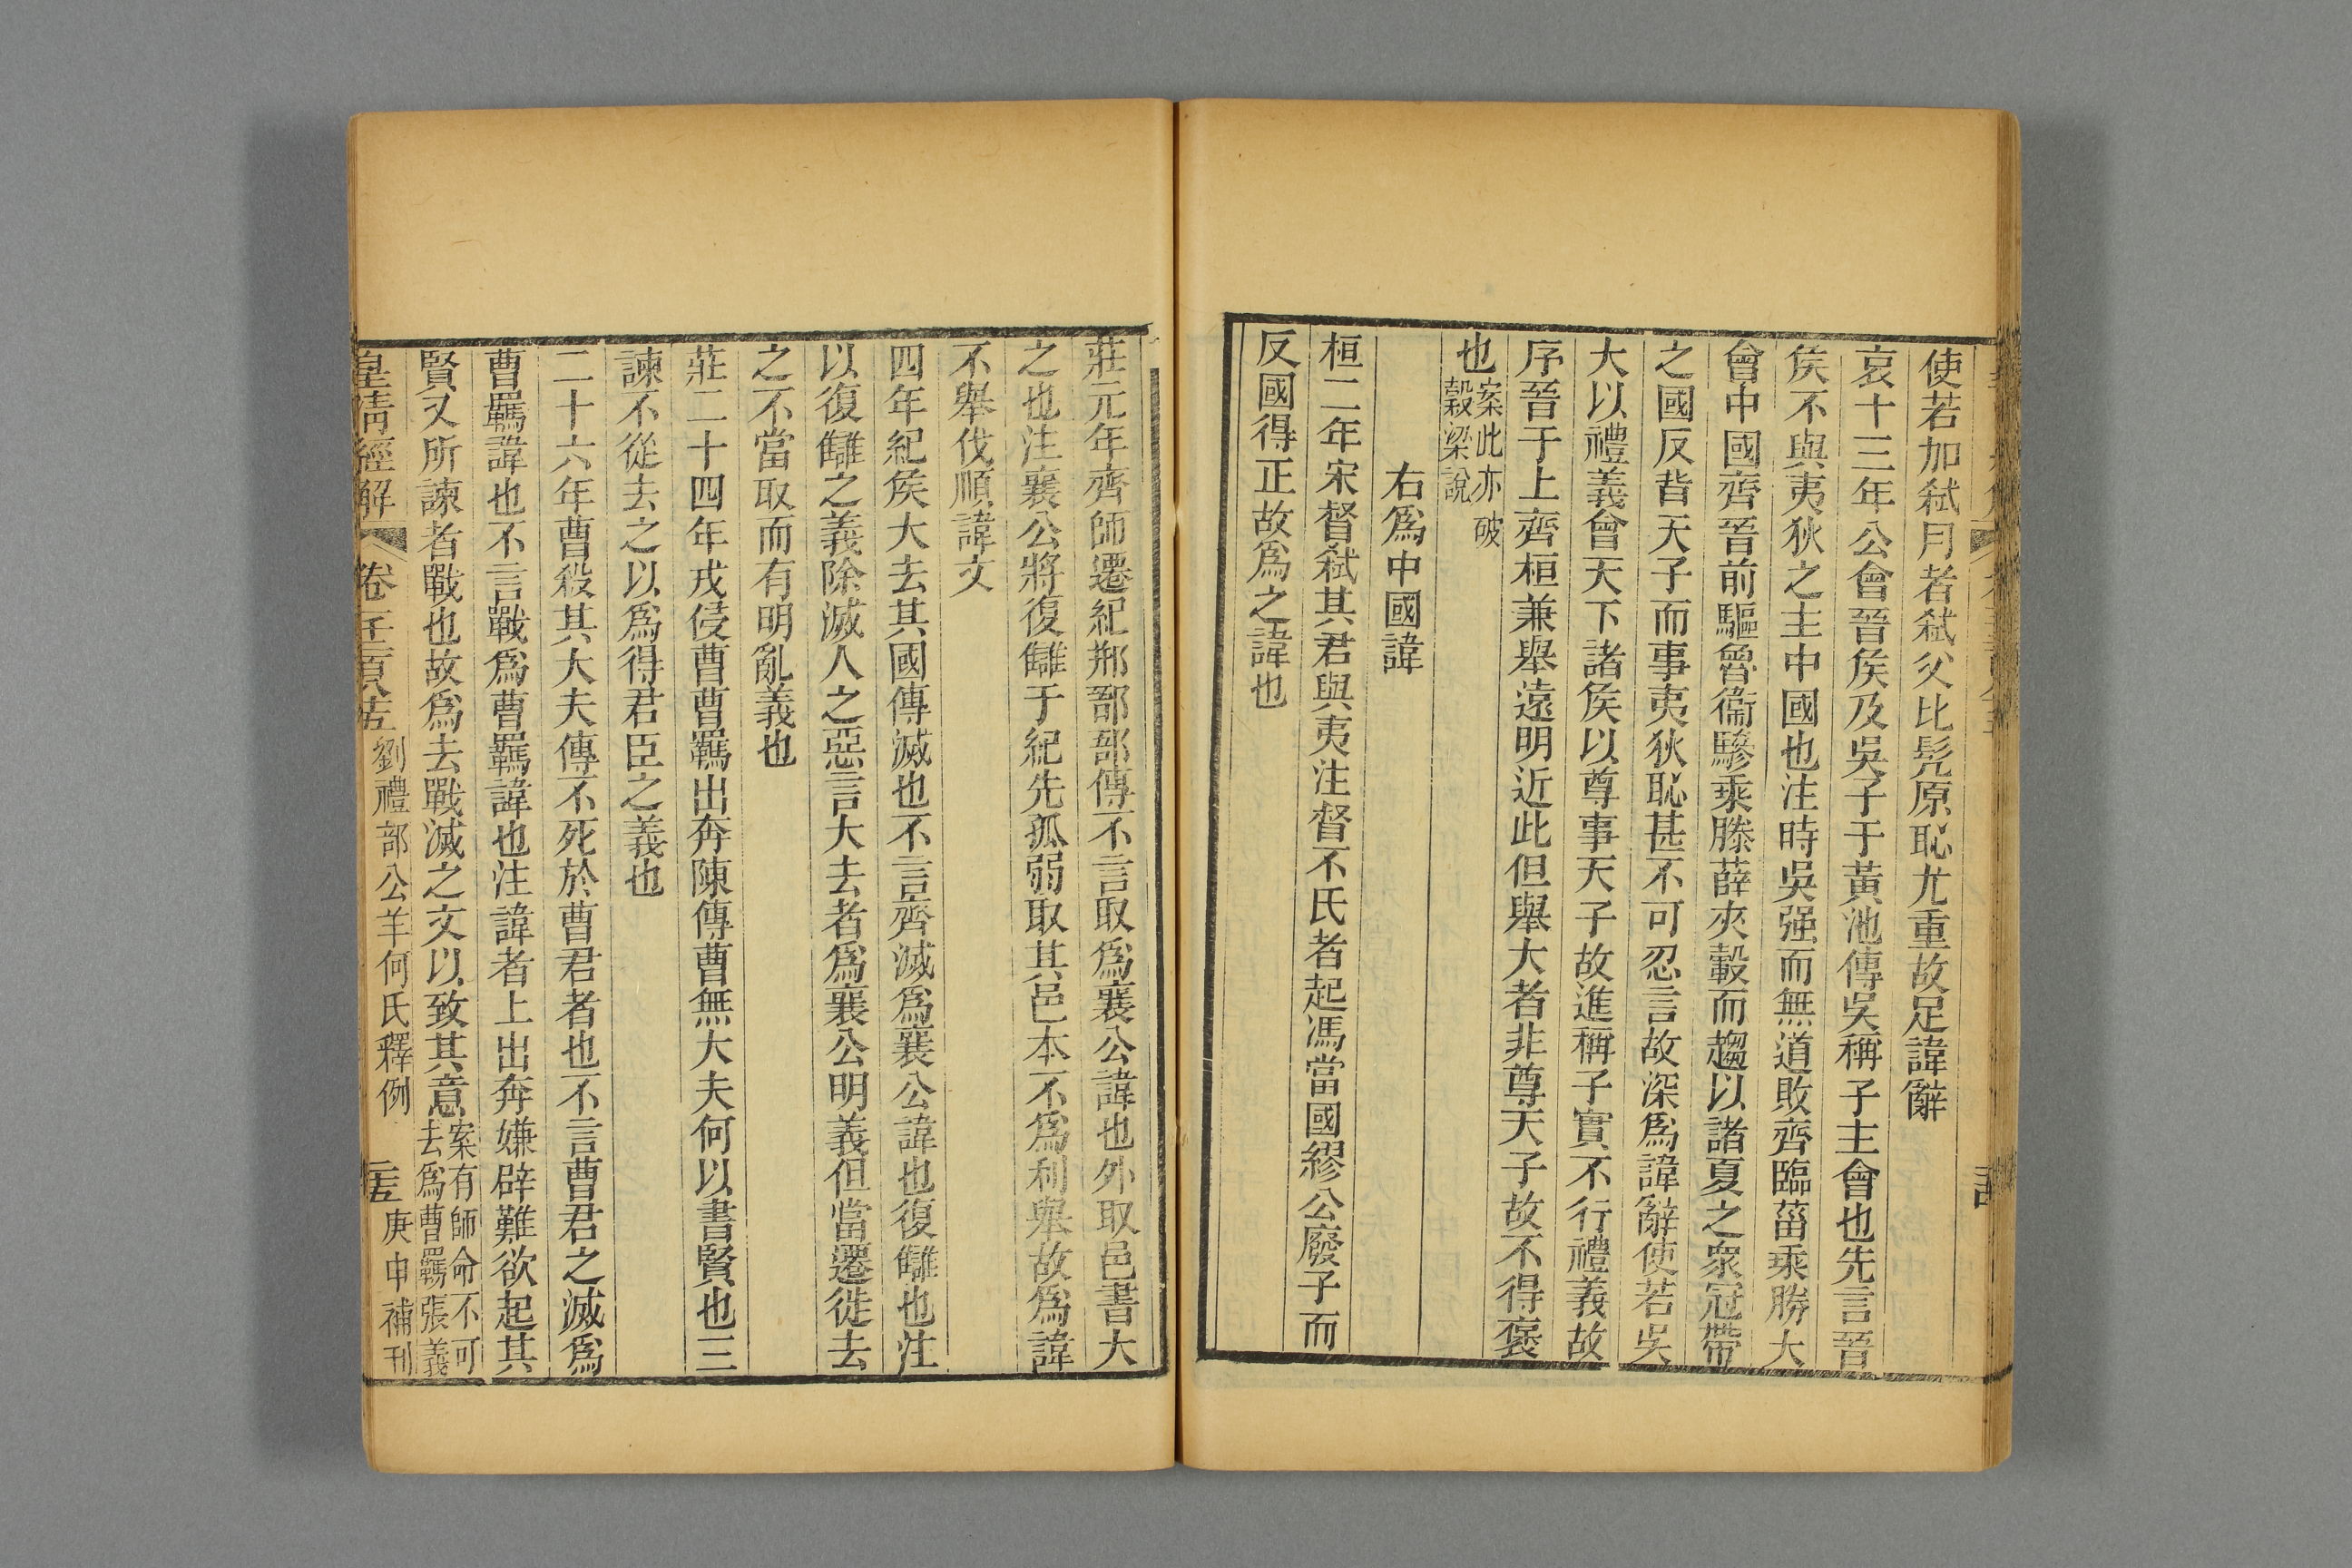 使若加弑月者弑父比髡原恥尤重故足諱辭
哀十三年公會晉侯及吳子于黃池傳吳稱子主會也先言晉
侯不與夷狄之主中國也注時吳强而無道敗齊臨菑乘勝大
會中國齊晉前驅魯衞驂乘滕薛夾轂而趨以諸夏之衆冠帶
之國反背天子而事夷狄恥甚不可忍言故深爲諱辭使若吳
大以禮義會天下諸侯以尊事天子故進稱子實不行禮義故
序晉于上齊桓兼舉遠明近此但舉大者非尊天子故不得襃
也案此亦破
穀梁說
右爲中國諱
桓二年宋督弑其君與夷注督不氏者起馮當國繆公廢子而
反國得正故爲之諱也
莊元年齊師遷紀郱鄑郚傳不言取爲襄公諱也外取邑書大
之也注襄公將復讎于紀先孤弱取其邑本不爲利舉故爲諱
不舉伐順諱文
四年紀侯大去其國傳滅也不言齊滅爲襄公諱也復讎也注
以復讎之義除滅人之惡言大去者爲襄公明義但當遷徙去
之不當取而有明亂義也
莊二十四年戎侵曹曹羈出奔陳傳曹無大夫何以書賢也三
諫不從去之以爲得君臣之義也
二十六年曹殺其大夫傳不死於曹君者也不言曹君之滅爲
曹羈諱也不言戰爲曹羈諱也注諱者上出奔嫌辟難欲起其
賢又所諫者戰也故爲去戰滅之文以致其意案有師命不可
去爲曹羈張義
皇清經解 卷千二百八十五 劉禮部公羊何氏釋例 二十五 庚申補刊